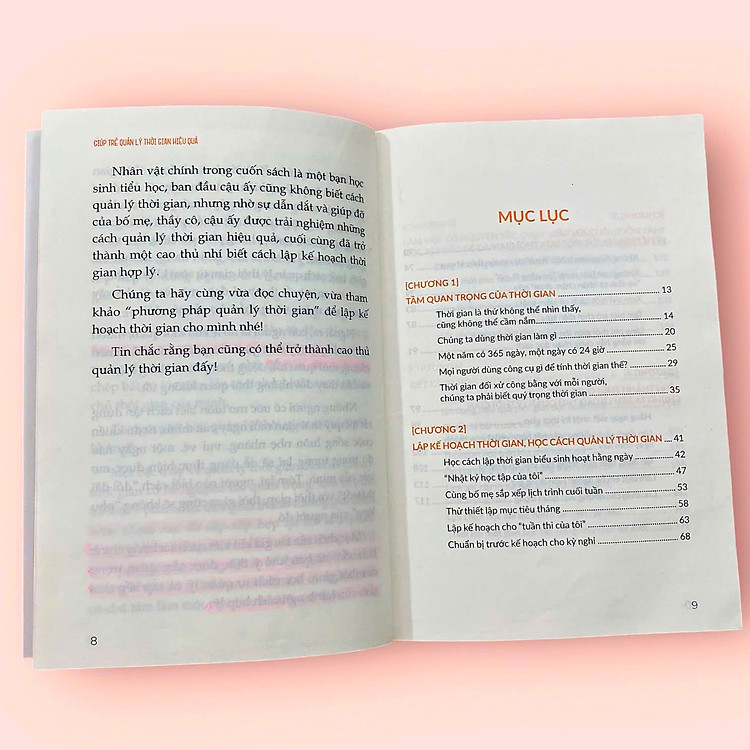 GIÚP TRẺ QUẢN LÝ THỜI GIAN HIỆU QUẢ
Nhân vật chính trong cuốn sách là một bạn học
sinh tiểu học, ban đầu cậu ấy cũng không biết cách
quản lý thời gian, nhưng nhờ sự dẫn dắt và giúp đỡ
của bố mẹ, thầy cô, cậu ấy được trải nghiệm những
cách quản lý thời gian hiệu quả, cuối cùng đã trở
thành một cao thủ nhí biết cách lập kế hoạch thời
gian hợp lý.
Chúng ta hãy cùng vừa đọc chuyện, vừa tham
khảo “phương pháp quản lý thời gian” để lập kế
hoạch thời gian cho mình nhé!
Tin chắc rằng bạn cũng có thể trở thành cao thủ
quản lý thời gian đấy!
8
MỤC LỤC
[CHƯƠNG 1]
TẦM QUAN TRỌNG CỦA THỜI GIAN ........ 13
Thời gian là thứ không thể nhìn thấy,
cũng không thể cầm nắm ........ 14
Chúng ta dùng thời gian làm gì ........ 20
Một năm có 365 ngày, một ngày có 24 giờ ........ 25
Mọi người dùng công cụ gì để tính thời gian thế? ........ 29
Thời gian đối xử công bằng với mỗi người,
chúng ta phải biết quý trọng thời gian ........ 35
[CHƯƠNG 2]
LẬP KẾ HOẠCH THỜI GIAN, HỌC CÁCH QUẢN LÝ THỜI GIAN .... 41
Học cách lập thời gian biểu sinh hoạt hằng ngày ........ 42
“Nhật ký học tập của tôi” ........ 47
Cùng bố mẹ sắp xếp lịch trình cuối tuần ........ 53
Thử thiết lập mục tiêu tháng ........ 58
Lập kế hoạch cho “tuần thi của tôi” ........ 63
Chuẩn bị trước kế hoạch cho kỳ nghỉ ........ 68
9